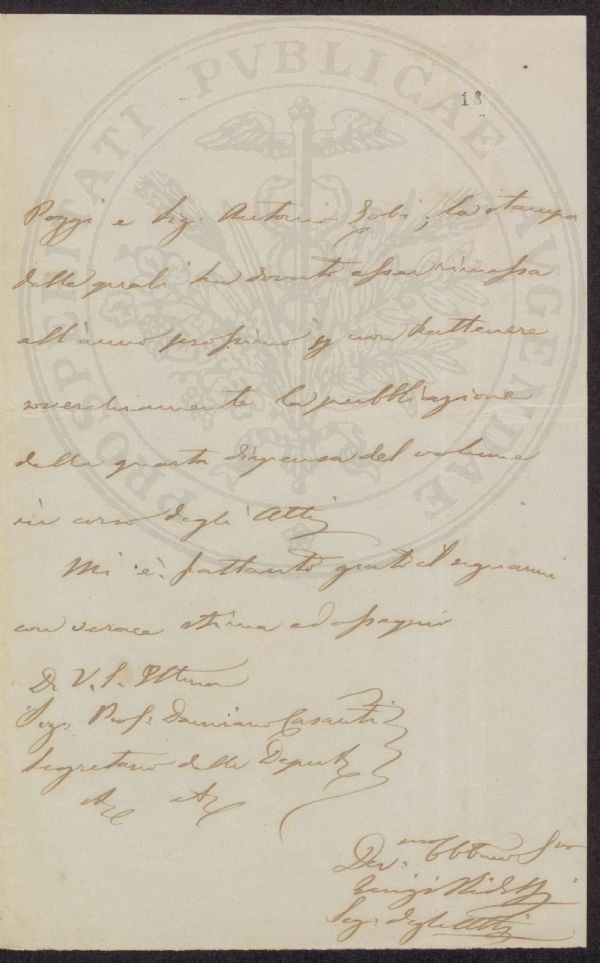 PROSPERITATI PVBLICAE AVGENDAE
18
Poggi e Sig. Antonio Zobi; la stampa
delle quali ha dovuto esser rimessa
all'anno prossimo p non trattenere
soverchiamente la pubblicazione
della quarta dispensa del volume
in corso degli Atti
Mi è frattanto grato il segnarmi
con verace stima ed ossequio
Di V. S. Illma
Sigr Prof: Damiano Casanti
Segretario delle Deput
Dev.mo Obbmo Svo
Luigi Ridolfi
Seg. degli Atti